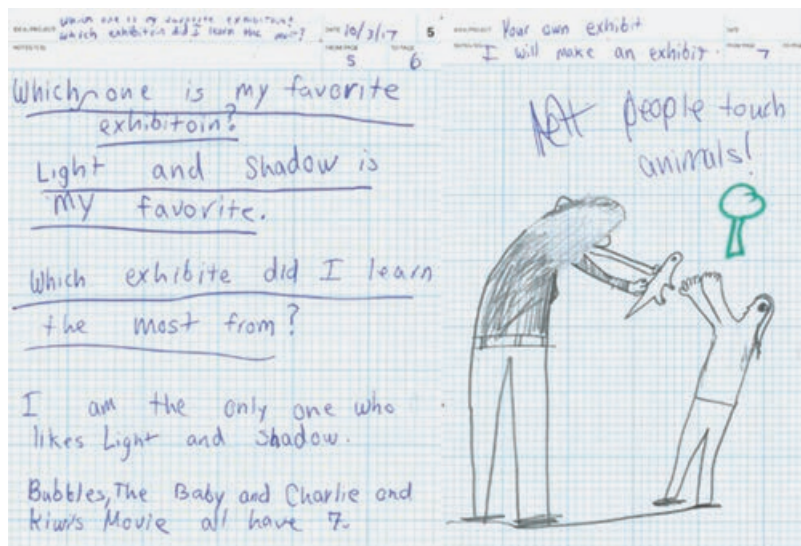 Which one is my favorite exhibition?
Which exhibitoin did I learn the most?
DATE 10/3/17
5
NOTES
FROM PAGE
5
6
Which one is my favorite
exhibitoin?
Light and Shadow is
my favorite.
Which exhibite did I learn
the most from?
I am the only one who
likes Light and Shadow.
Bubbles, The Baby and Charlie and
Kiwi's Movie all have 7.
Your own exhibit
DATE
I will make an exhibit.
FROM PAGE
7
people touch
animals!